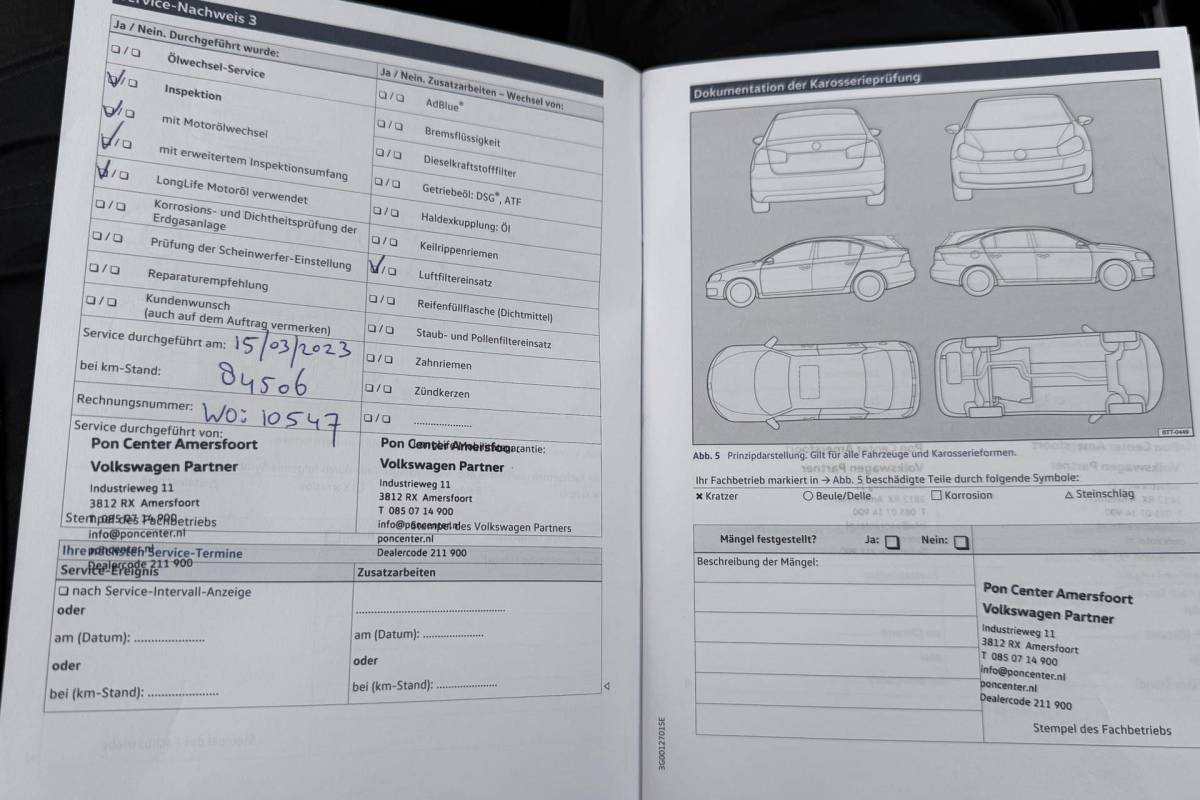 Service-Nachweis 3
Ja / Nein. Durchgeführt wurde:
Ölwechsel-Service
Inspektion
mit Motorölwechsel
mit erweitertem Inspektionsumfang
LongLife Motoröl verwendet
Korrosions- und Dichtheitsprüfung der
Erdgasanlage
Prüfung der Scheinwerfer-Einstellung
Reparaturempfehlung
Kundenwunsch
(auch auf dem Auftrag vermerken)
Service durchgeführt am: 15/03/2023
bei km-Stand: 84506
Rechnungsnummer: WO: 10547
Service durchgeführt von:
Pon Center Amersfoort
Volkswagen Partner
Industrieweg 11
3812 RX Amersfoort
T 085 07 14 900
Stempel des Fachbetriebs
info@poncenter.nl
poncenter.nl
Dealercode 211 900
Ja / Nein. Zusatzarbeiten – Wechsel von:
AdBlue®
Bremsflüssigkeit
Dieselkraftstofffilter
Getriebeöl: DSG®, ATF
Haldexkupplung: Öl
Keilrippenriemen
Luftfiltereinsatz
Reifenfüllflasche (Dichtmittel)
Staub- und Pollenfiltereinsatz
Zahnriemen
Zündkerzen
....................
Pon Center Amersfoort
Volkswagen Partner
Industrieweg 11
3812 RX Amersfoort
T 085 07 14 900
info@poncenter.nl
Stempel des Volkswagen Partners
poncenter.nl
Dealercode 211 900
Ihre nächsten Service-Termine
Service-Ereignis
Zusatzarbeiten
nach Service-Intervall-Anzeige
oder
am (Datum): ....................
oder
bei (km-Stand): ....................
........................................
am (Datum): ..................
oder
bei (km-Stand): ..................
Dokumentation der Karosserieprüfung
BTT-0449
Abb. 5 Prinzipdarstellung: Gilt für alle Fahrzeuge und Karosserieformen.
Ihr Fachbetrieb markiert in → Abb. 5 beschädigte Teile durch folgende Symbole:
✖ Kratzer ○ Beule/Delle □ Korrosion △ Steinschlag
Mängel festgestellt? Ja: ❑ Nein: ❑
Beschreibung der Mängel:
Pon Center Amersfoort
Volkswagen Partner
Industrieweg 11
3812 RX Amersfoort
T 085 07 14 900
info@poncenter.nl
poncenter.nl
Dealercode 211 900
Stempel des Fachbetriebs
3G0012701SE